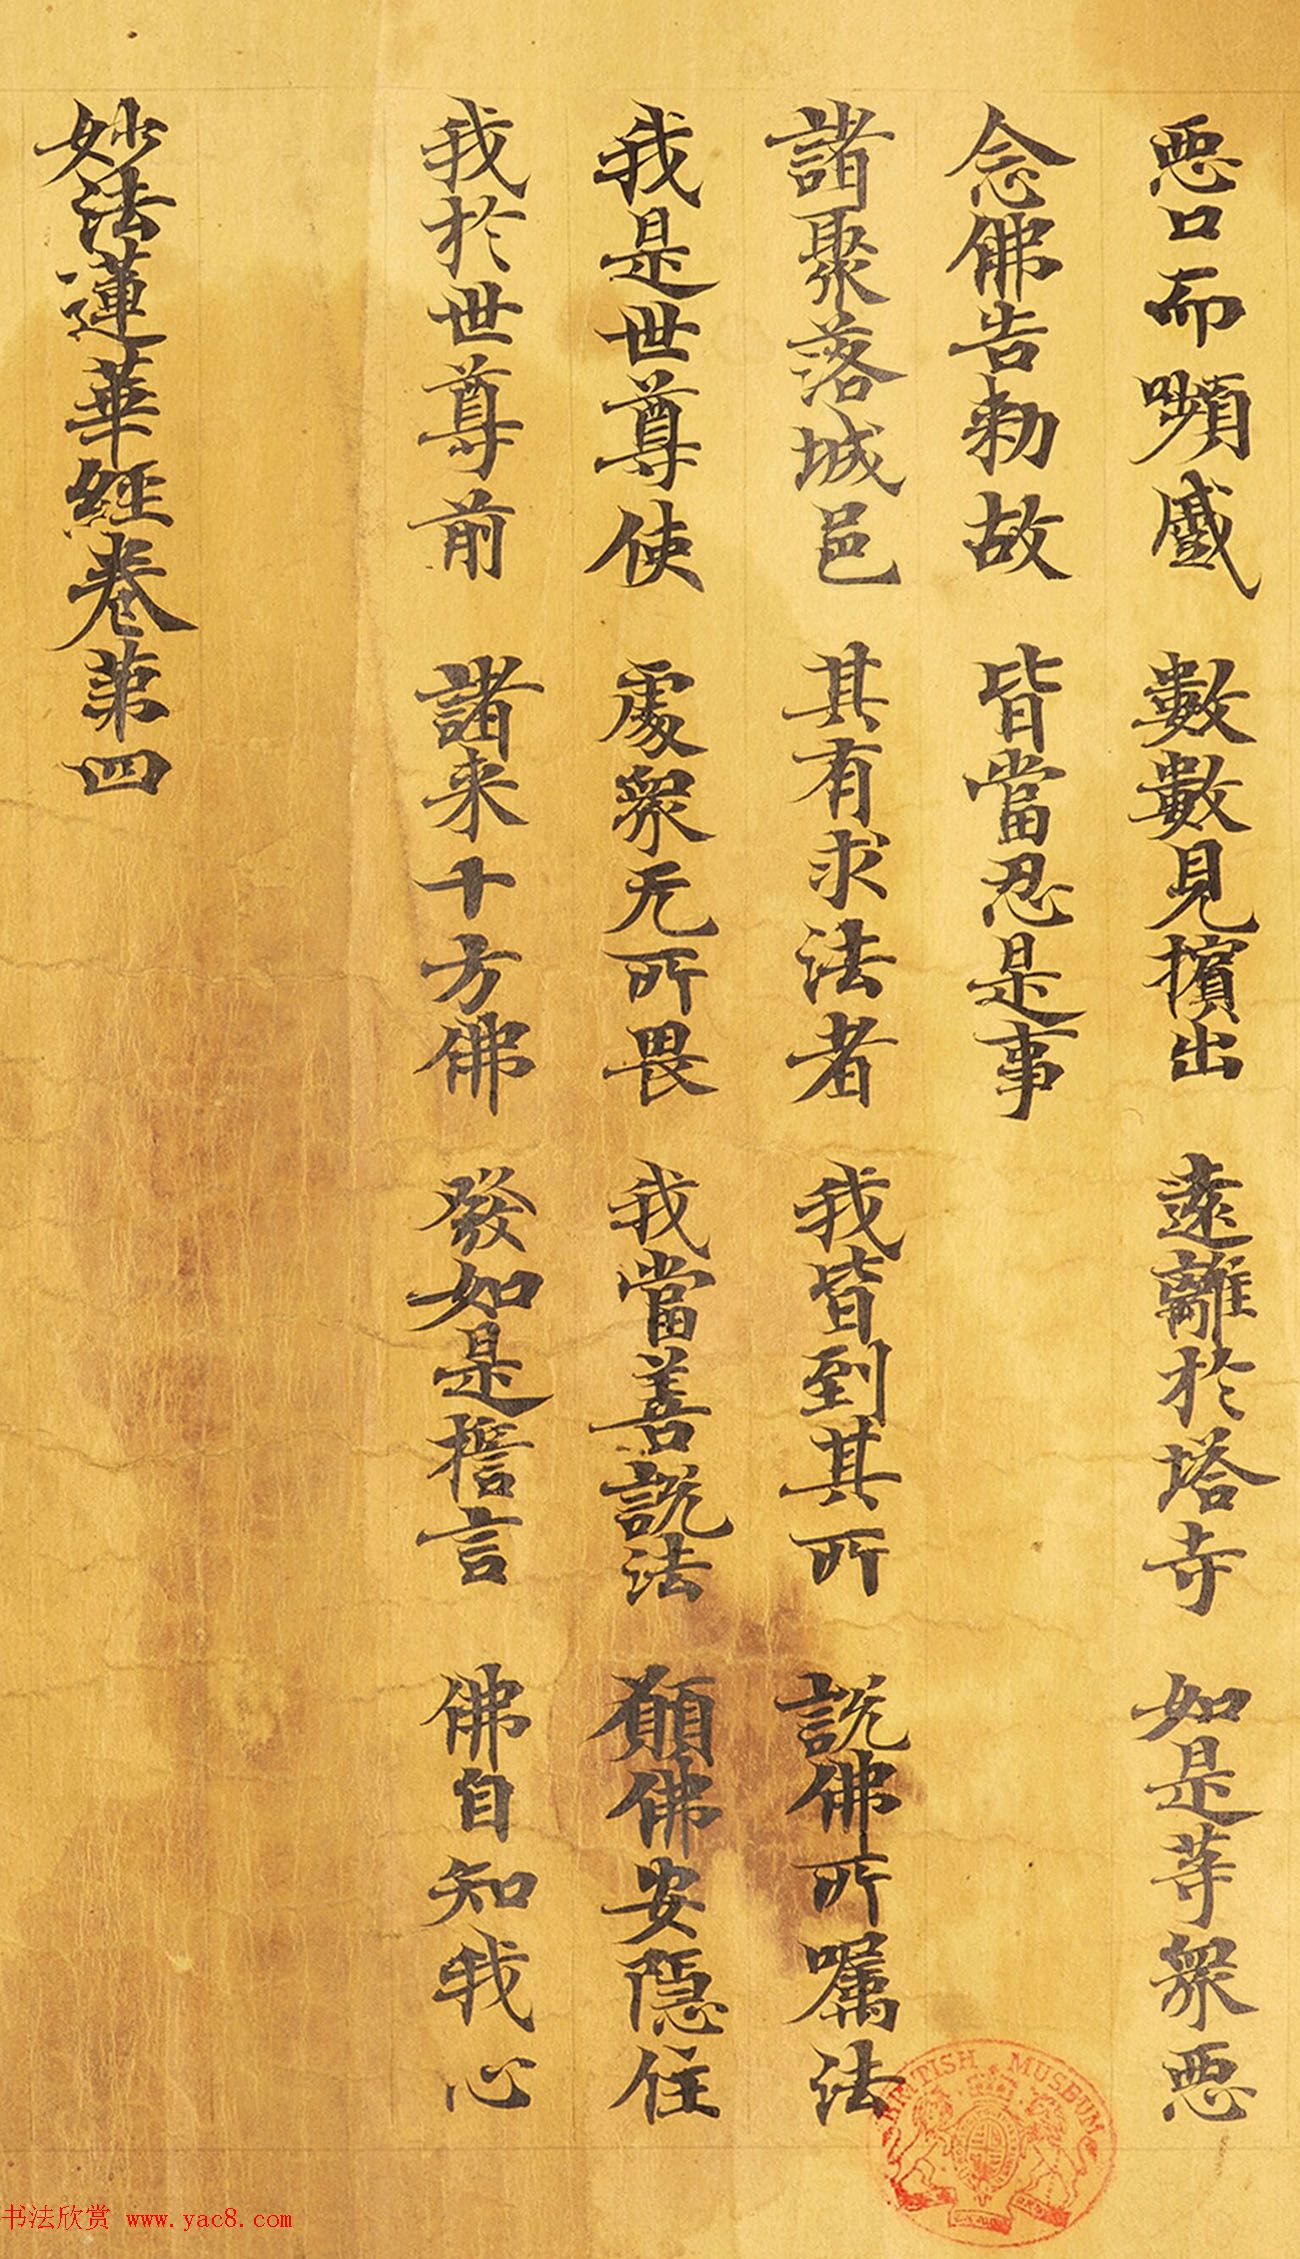 惡口而嚬蹙　數數見擯出　遠離於塔寺　如是等眾惡
念佛告勅故　皆當忍是事
諸聚落城邑　其有求法者　我皆到其所　說佛所囑法
我是世尊使　處眾无所畏　我當善說法　願佛安隱住
我於世尊前　諸来十方佛　發如是誓言　佛自知我心
妙法蓮華經卷第四
BRITISH MUSEUM
书法欣赏 www.yac8.com